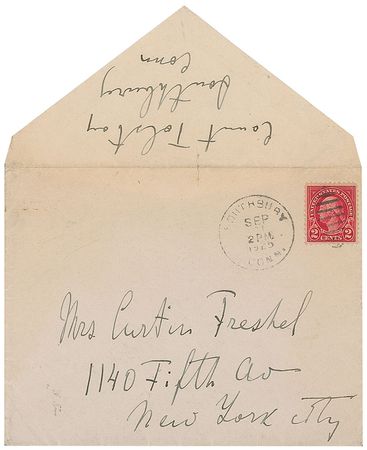 Count Tolstoy
Southbury
Conn
SOUTHBURY
SEP
2 PM
CONN.
UNITED STATES POSTAGE
2 CENTS 2
Mrs Curtin Freshel
1140 Fifth Av
New York city